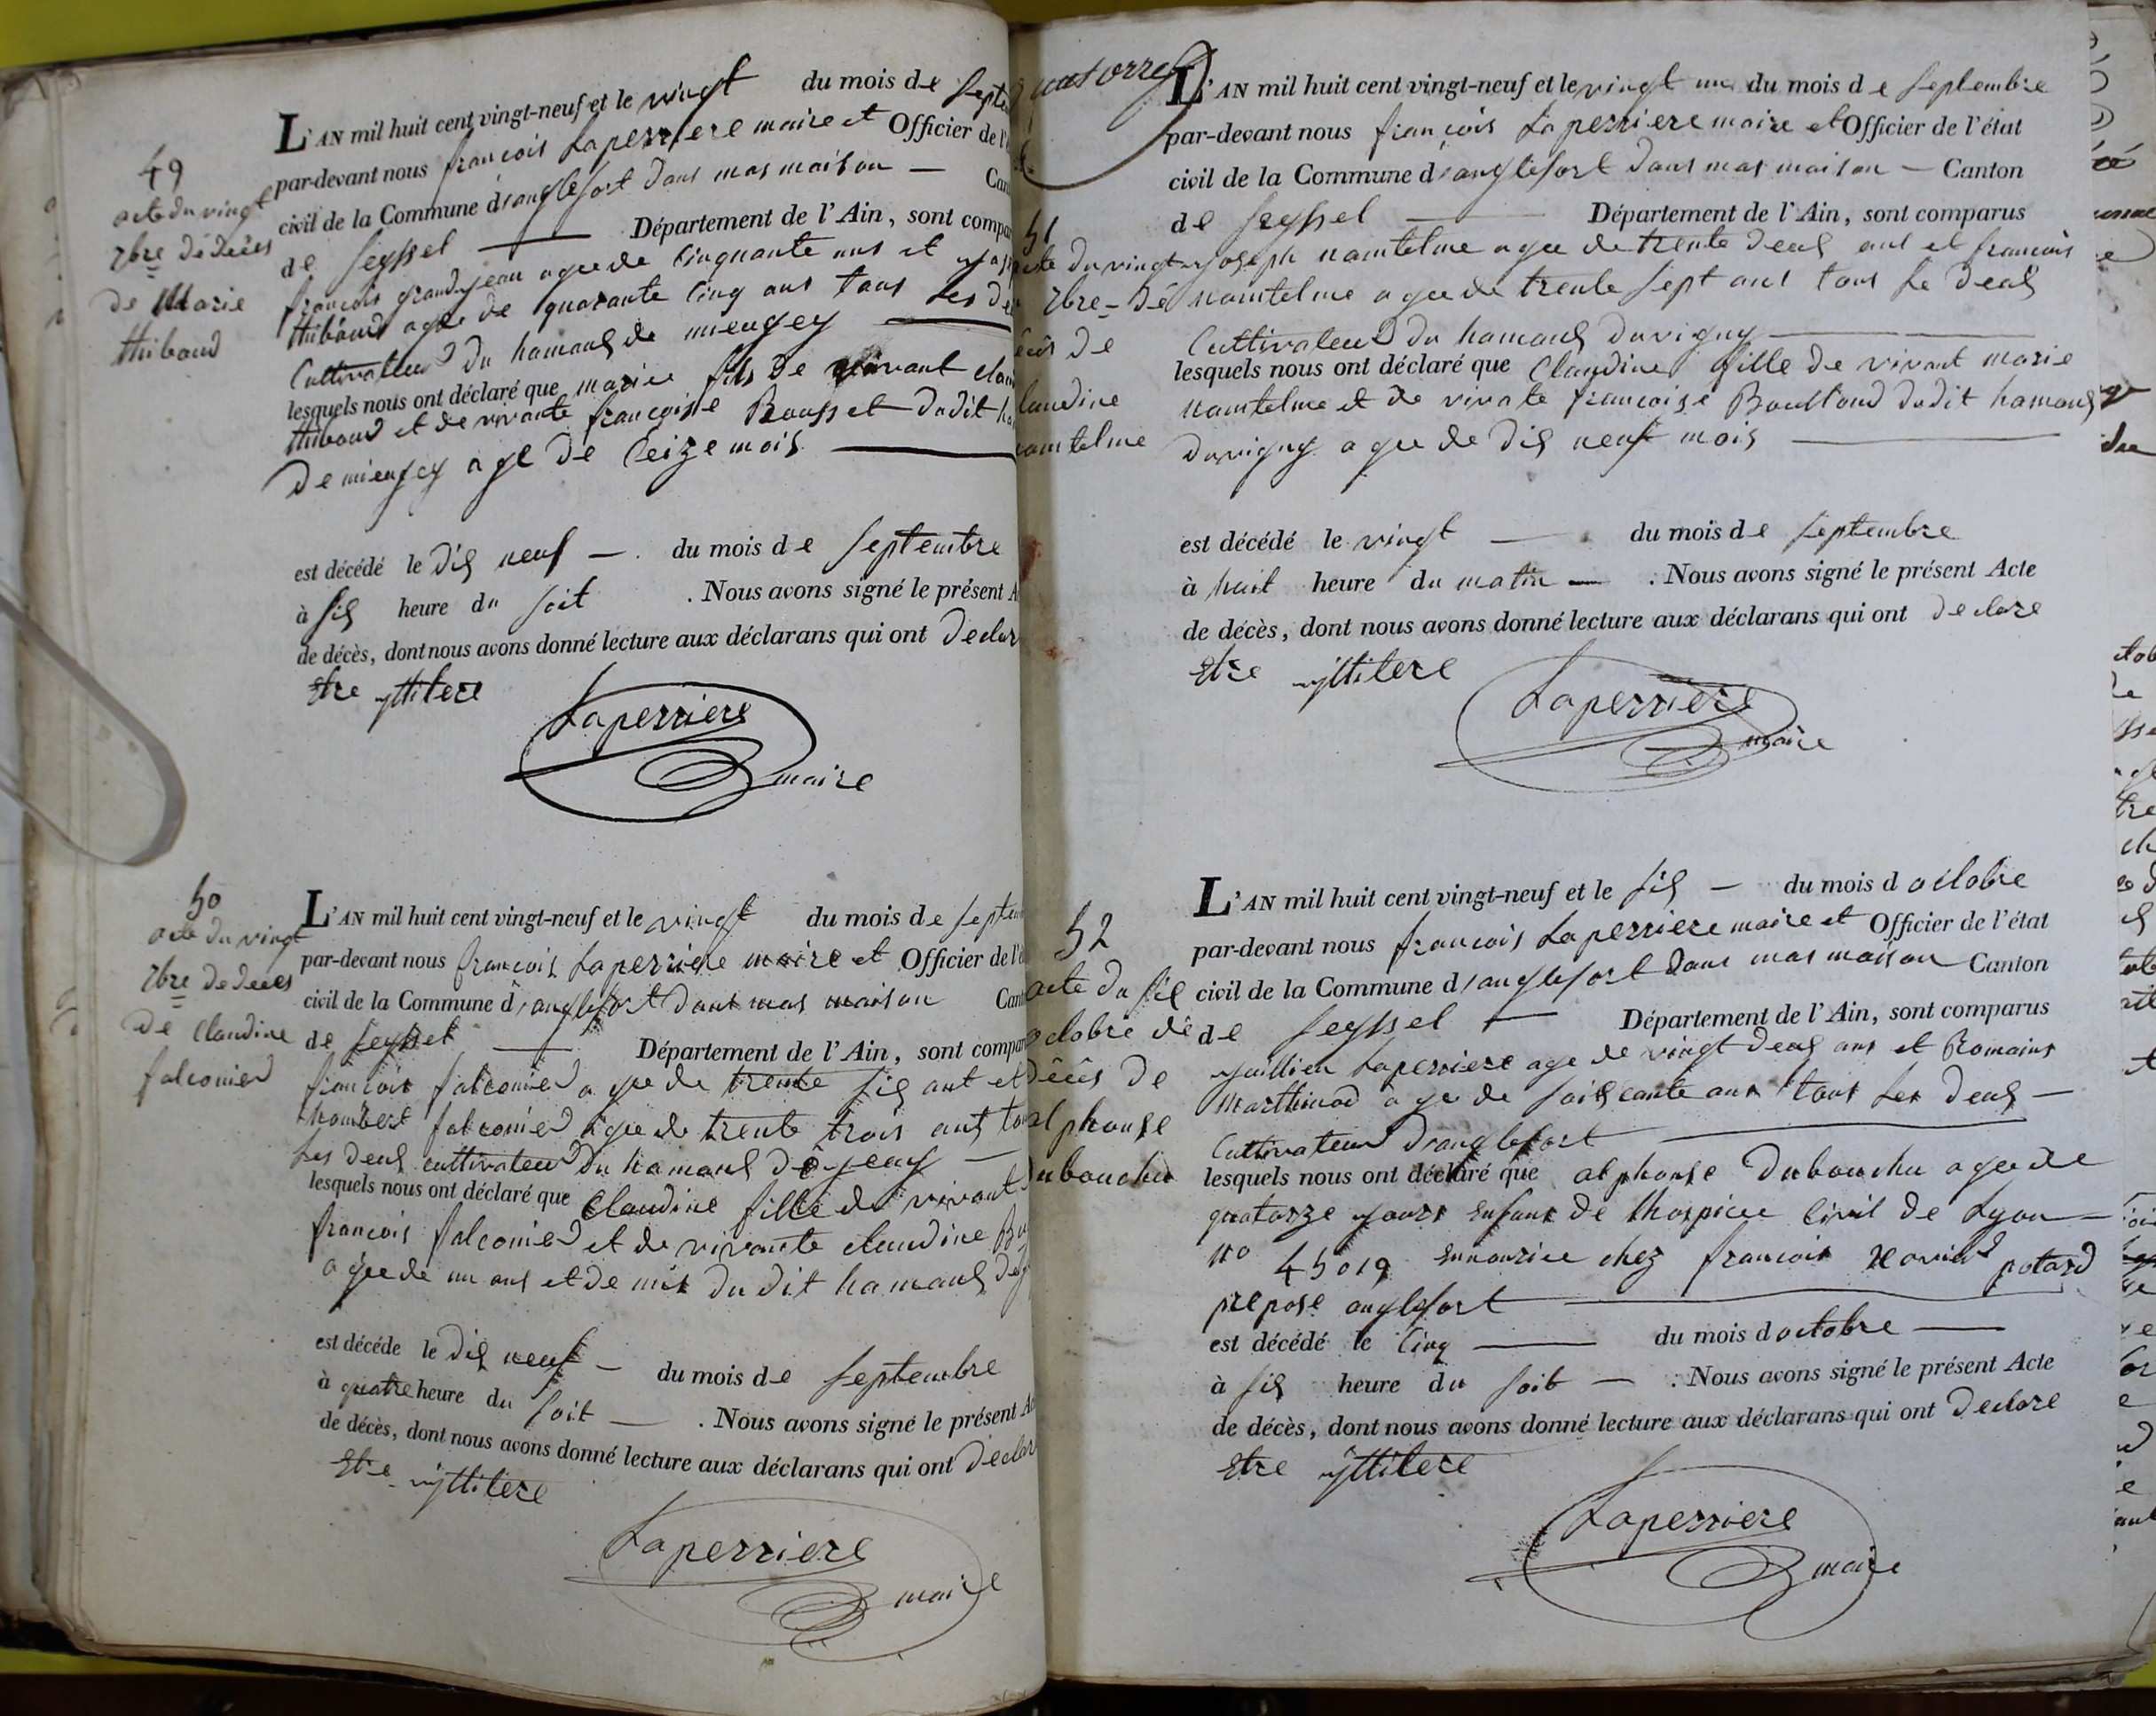 49
acte du vingt
7bre de dècés
de Marie
thiboud
L'AN mil huit cent vingt-neuf et le vingt du mois de Septe
par-devant nous francois Laperriere maire et Officier de l'é
civil de la Commune d'anglefort dans mas maison — Can
de Seyssel — Département de l'Ain, sont compar
francois grandjean agee de Cinquante ans et
thiboud agee de quarante Cinq ans tous Les de
Cultivateur du hamaux de mieugey —
lesquels nous ont déclaré que marie fils de vivant clau
thiboud et de vivante francoise Rousset dudit ha
de mieugey age de Ceize mois —
est décédé le dix neuf — . du mois de Septembre
à Six heure du Soit . Nous avons signé le présent A
de décès, dont nous avons donné lecture aux déclarans qui ont declar
Etre yllitere
Laperriere
maire
50
acte du vingt
7bre de decès
de Claudine
falconier
L'AN mil huit cent vingt-neuf et le vingt du mois de Septem
par-devant nous francois Laperriere maire et Officier de l'é
civil de la Commune d'anglefort dans mas maison Cant
de Seyssel — Département de l'Ain, sont compar
francois falconier agee de trente Six ans et
humbert falconier agee de trente trois ans tou
Les deux cultivateur du hamaux
lesquels nous ont déclaré que Claudine fille de vivant
francois falconier et de vivante claudine
agee de un ans et de mis du dit hamaux
est décédé le dix neuf — du mois de Septembre
à quatre heure du Soit — . Nous avons signé le présent Ac
de décès, dont nous avons donné lecture aux déclarans qui ont declar
Etre yllitere
Laperriere
maire
quatorze
L'AN mil huit cent vingt-neuf et le vingt un du mois de Septembre
par-devant nous francois Laperriere maire et Officier de l'état
civil de la Commune d'anglefort dans mas maison — Canton
de Seyssel — Département de l'Ain, sont comparus
51
acte du vingt
7bre - dé
cés de
Claudine
nantelme
joseph nantelme agee de trente deux ans et francois
nantelme agee de trente Sept ans tous Le deux
Cultivateur du hamaux davigny —
lesquels nous ont déclaré que Claudine fille de vivant marie
nantelme et de vivate francoise Boulloud dudit hamaux
davigny agee de dix neuf mois —
est décédé le vingt — . du mois de Septembre
à huit heure du matin — . Nous avons signé le présent Acte
de décès, dont nous avons donné lecture aux déclarans qui ont declare
Etre yllitere
Laperriere
maire
52
acte du Six
octobre de
dècés de
alphonse
Dubouchu
L'AN mil huit cent vingt-neuf et le Six — du mois d octobre
par-devant nous francois Laperriere maire et Officier de l'état
civil de la Commune d'anglefort dans mas maison Canton
de Seyssel — Département de l'Ain, sont comparus
jullien Laperriere age de vingt deux ans et Romains
Marthinod agee de Soixcante ans tous Les deux —
Cultivateur danglefort —
lesquels nous ont déclaré que alphonse Dubouchu agee de
quatorze jours Enfant de lhospice Civil de Lyon —
no 45019 Ennourice chez francois potard
prepose anglefort —
est décédé le Cinq — du mois d octobre —
à Six heure du Soit — . Nous avons signé le présent Acte
de décès, dont nous avons donné lecture aux déclarans qui ont declare
Etre yllitere
Laperriere
maire